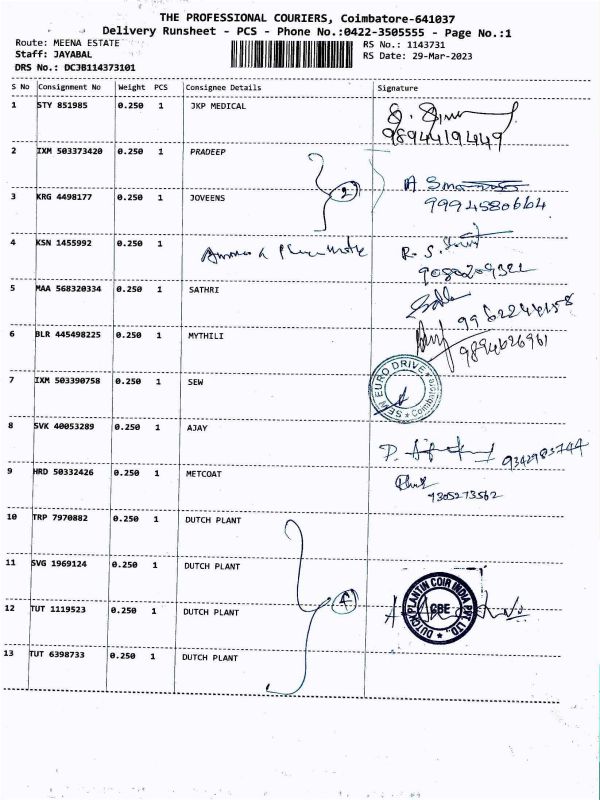 THE PROFESSIONAL COURIERS, Coimbatore-641037
Delivery Runsheet - PCS - Phone No.:0422-3505555 - Page No.:1
Route: MEENA ESTATE
Staff: JAYABAL
DRS No.: DCJB114373101
RS No.: 1143731
RS Date: 29-Mar-2023
S No Consignment No Weight PCS Consignee Details Signature
1 STY 851985 0.250 1 JKP MEDICAL
9894419449
2 IXM 503373420 0.250 1 PRADEEP
2
3 KRG 4498177 0.250 1 JOVEENS
9994580664
4 KSN 1455992 0.250 1
R. S.
9080209321
5 MAA 568320334 0.250 1 SATHRI
9962244158
6 BLR 445498225 0.250 1 MYTHILI
9894626961
7 IXM 503390758 0.250 1 SEW
SEW EURO DRIVE * Coimbatore *
8 SVK 40053289 0.250 1 AJAY
9342983744
9 HRD 50332426 0.250 1 METCOAT
9305273562
10 TRP 7970882 0.250 1 DUTCH PLANT
11 SVG 1969124 0.250 1 DUTCH PLANT
12 TUT 1119523 0.250 1 DUTCH PLANT
4
DUTCH PLANTIN COIR INDIA PVT. LTD. * CBE
13 TUT 6398733 0.250 1 DUTCH PLANT